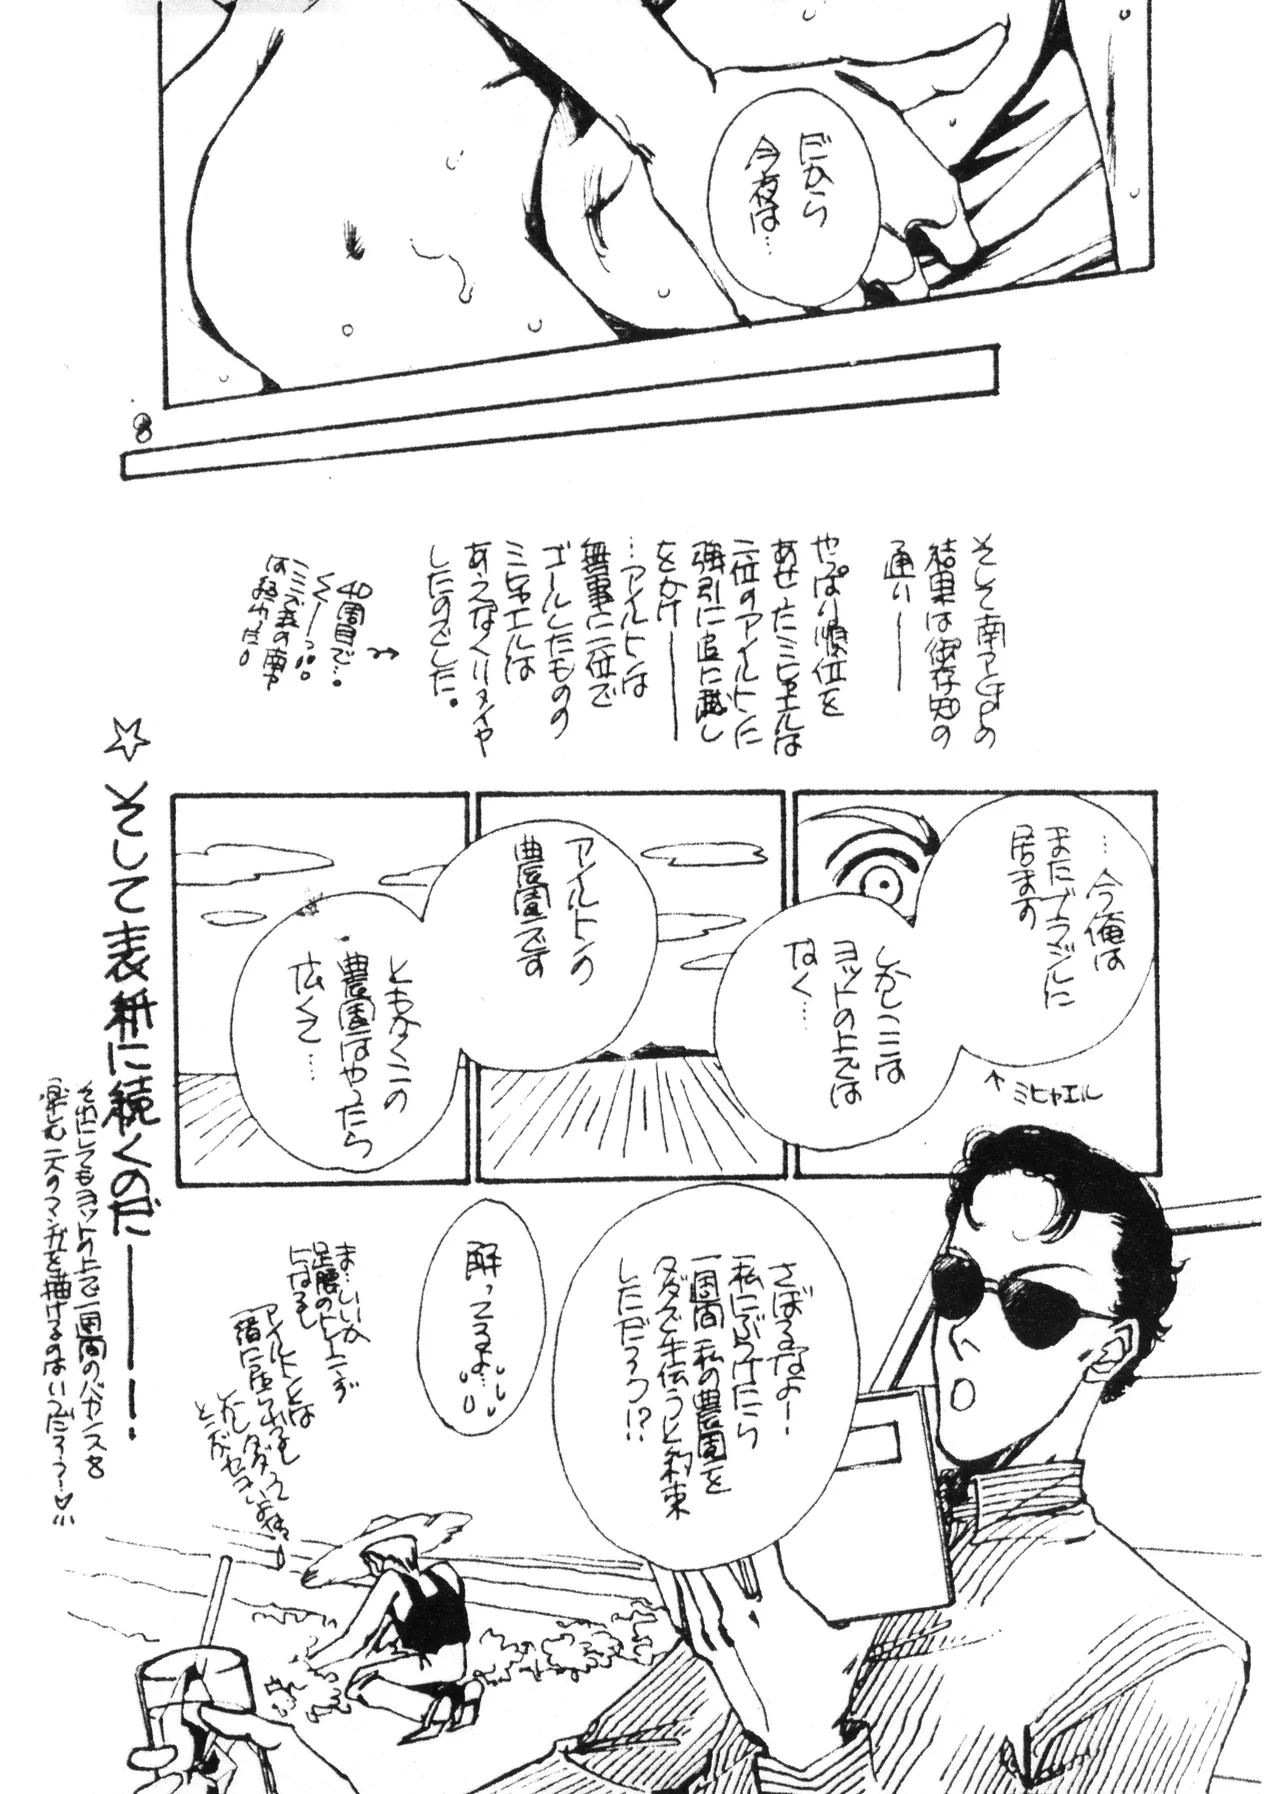 だから
今夜は…
8
そして南アとGPの
結果は御存知の
通り──
やっぱり順位を
あせったミヒャエルは
二位のアイルトンに
強引に追い越し
をかけ──
…アイルトンは
無事に二位で
ゴールしたものの
ミヒャエルは
あえなくリタイヤ
したのでした。
40周目で…。
…今俺は
まだブラジルに
居ます
しかしここは
ヨットの上では
なく…
↑ミヒャエル
アイルトンの
農園です
ともかくこの
農園はやったら
広くて…
さぼるなよー
私にぶつけたら
一週間私の農園を
タダで手伝うと約束
しただろう!?
解ってるよ…
ま…いいか
足腰のトレーニング
になるし
アイルトンとは
一緒に居れるし
☆そして表紙に続くのだ───!
それにしてもヨットの上で一週間のバカンスを
楽しむ二人のマンガを描けるのはいつだろう!♡